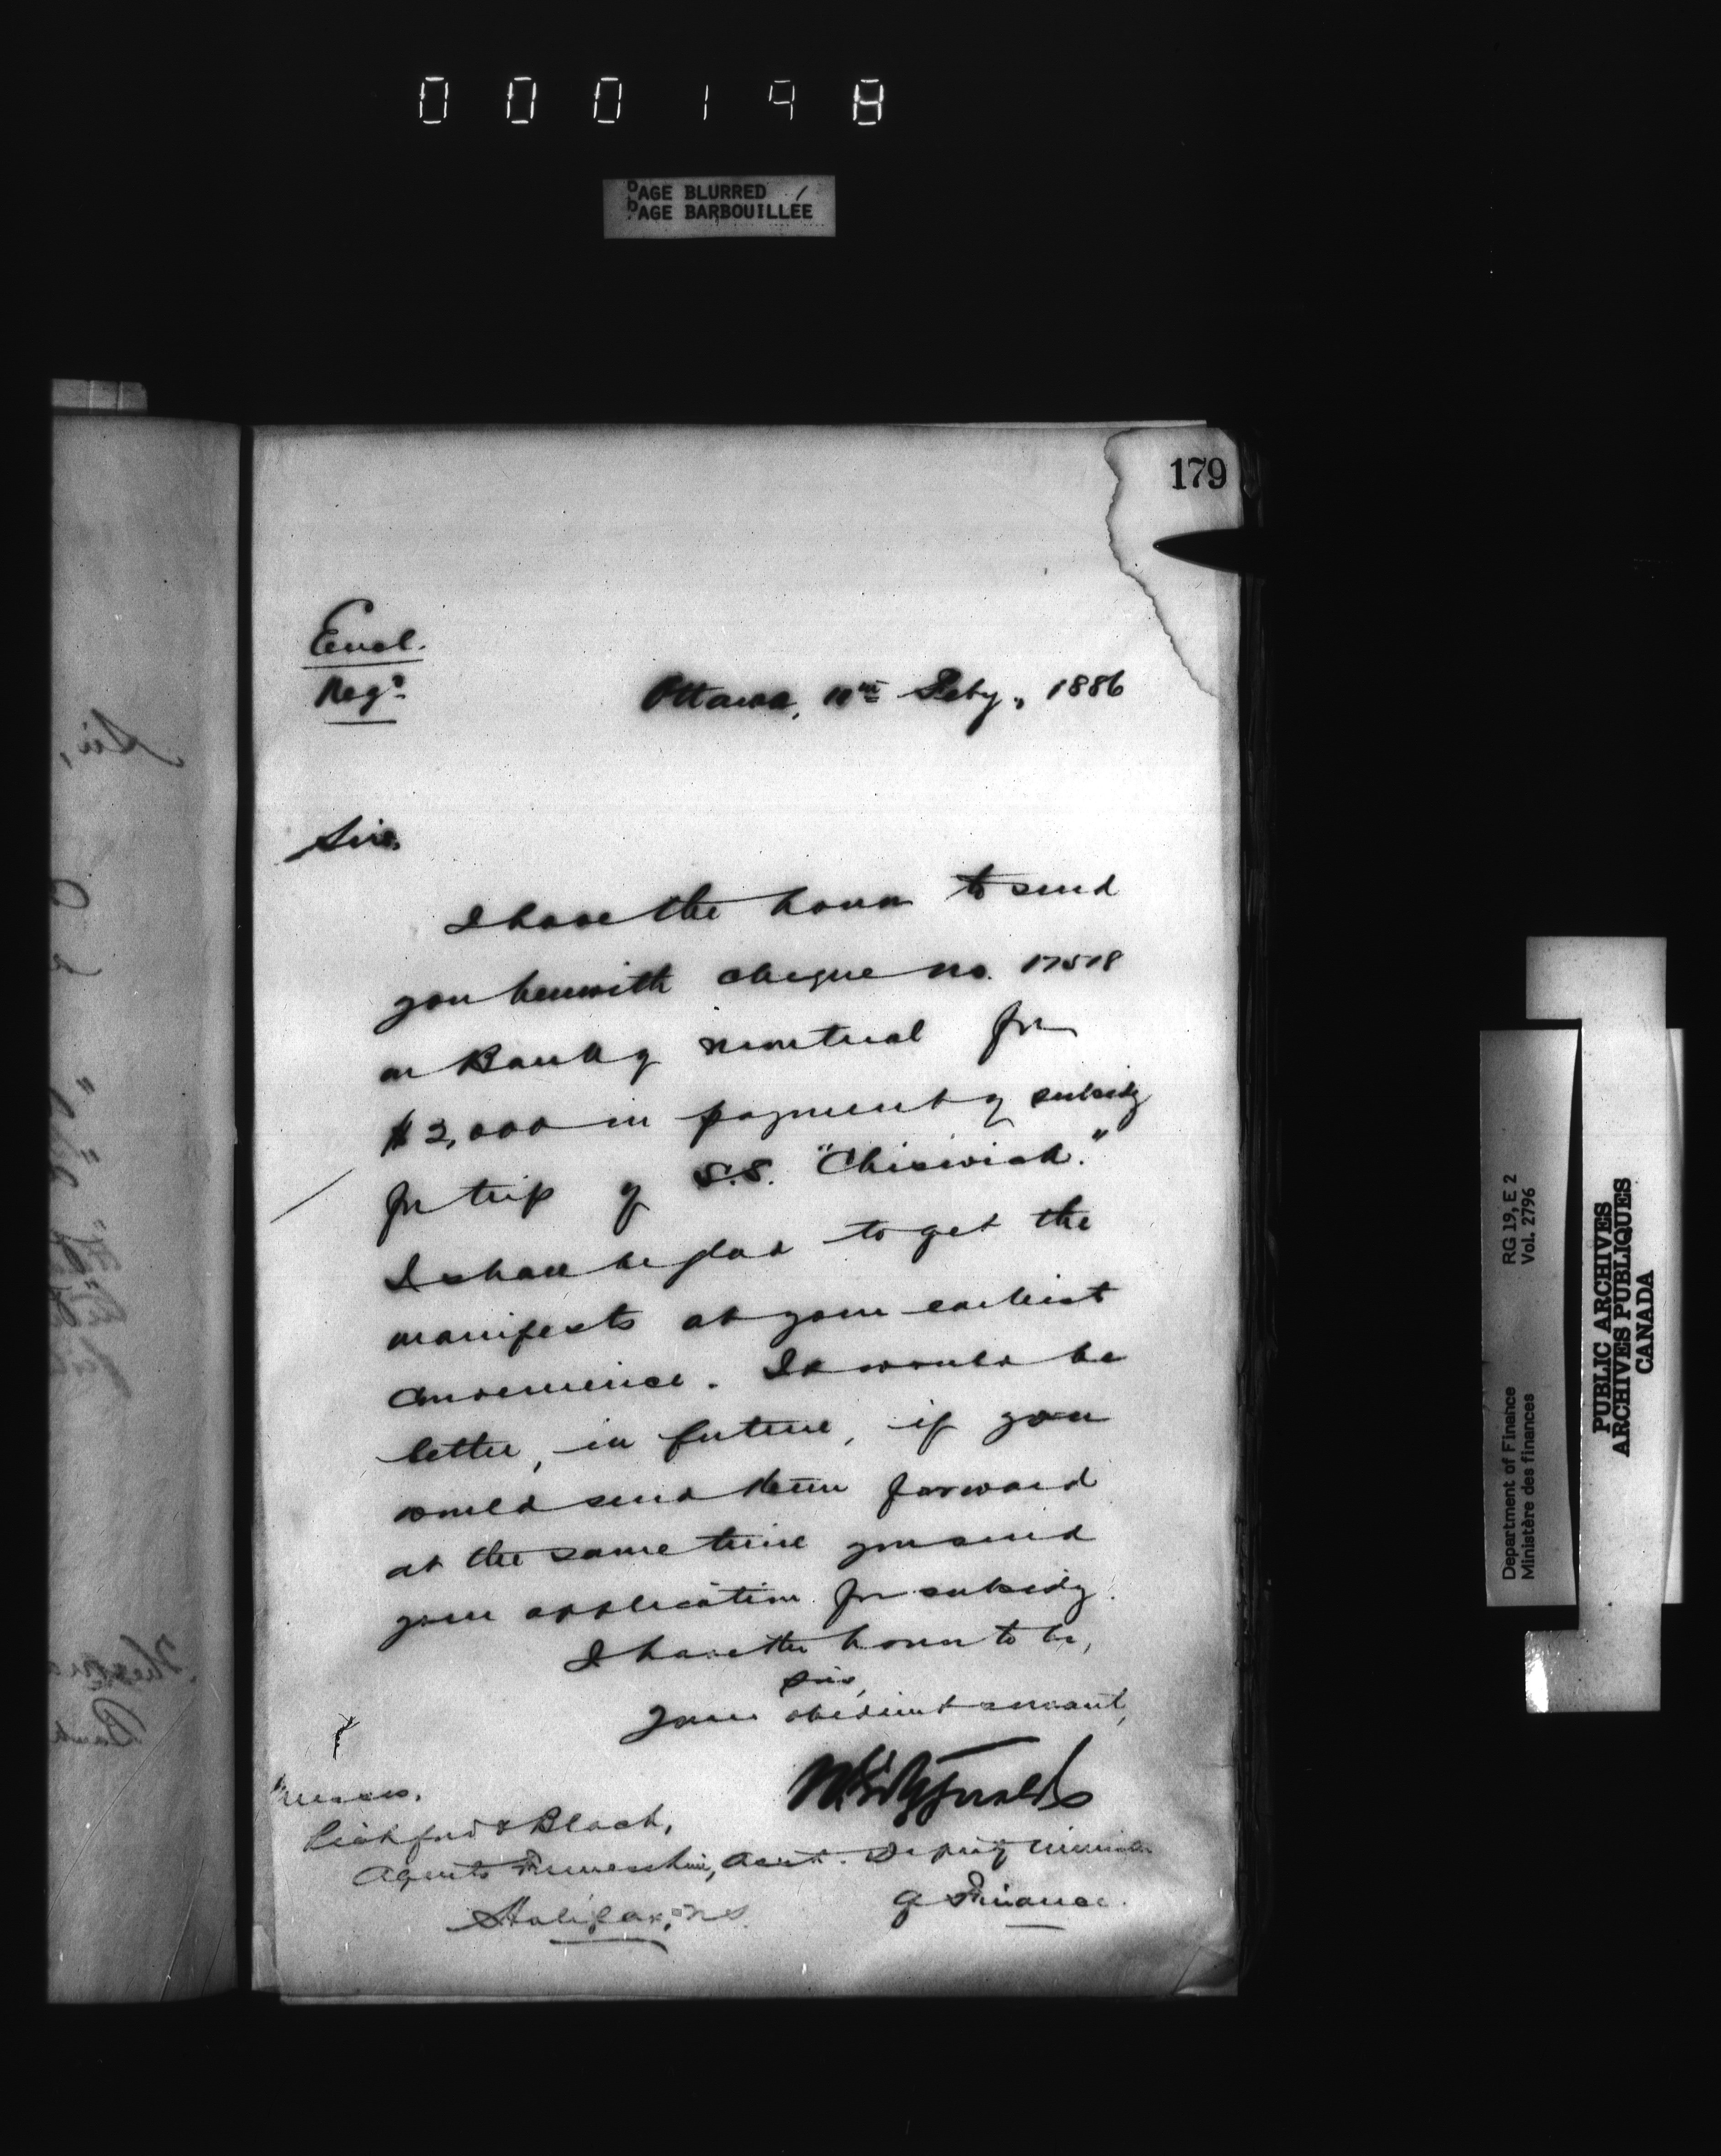 000198
PAGE BLURRED
PAGE BARBOUILLÉE
179
Encl.
Regd
Ottawa, Feby, 1886
Sir,
I have the honor to send
you herewith cheque no. 17518
on Bank of Montreal for
$2,000 in payment of subsidy
for trip of S.S. "Chiswick."
I shall be glad to get the
manifests at your earliest
convenience. It would be
better, in future, if you
would send them forward
at the same time you send
your application for subsidy.
I have the honor to be,
Sir,
Your obedient servant,
Messrs.
Pickford & Black,
Agents Furness Line,
Halifax, N.S.
Deputy Minister
of Finance.
Department of Finance RG 19, E 2
Ministère des finances Vol. 2796
PUBLIC ARCHIVES
ARCHIVES PUBLIQUES
CANADA